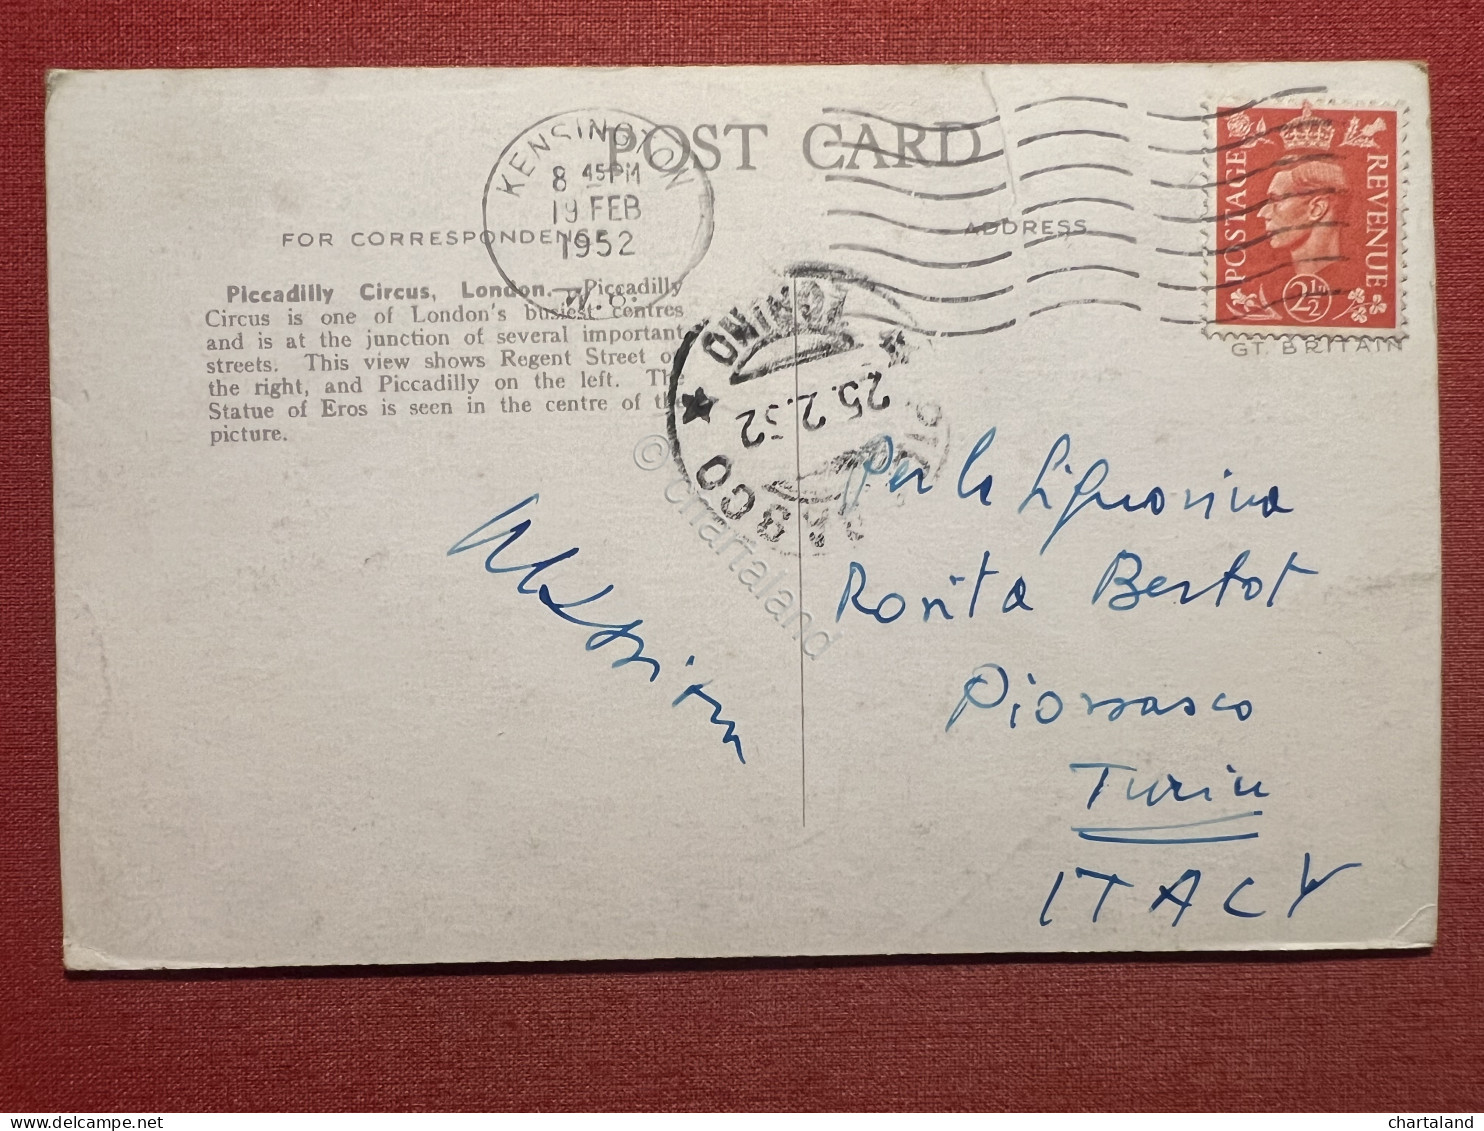 POST CARD
KENSINGTON
8 45PM
19 FEB
1952
W. 8.
FOR CORRESPONDENCE
ADDRESS
POSTAGE
REVENUE
2½D
GT. BRITAIN
Piccadilly Circus, London.—Piccadilly
Circus is one of London's busiest centres
and is at the junction of several important
streets. This view shows Regent Street on
the right, and Piccadilly on the left. The
Statue of Eros is seen in the centre of the
picture.
25.2.52
Per la Signorina
Rosita Bertot
Piossasco
Turin
ITALY
© chartaland
chartaland
delcampe.net